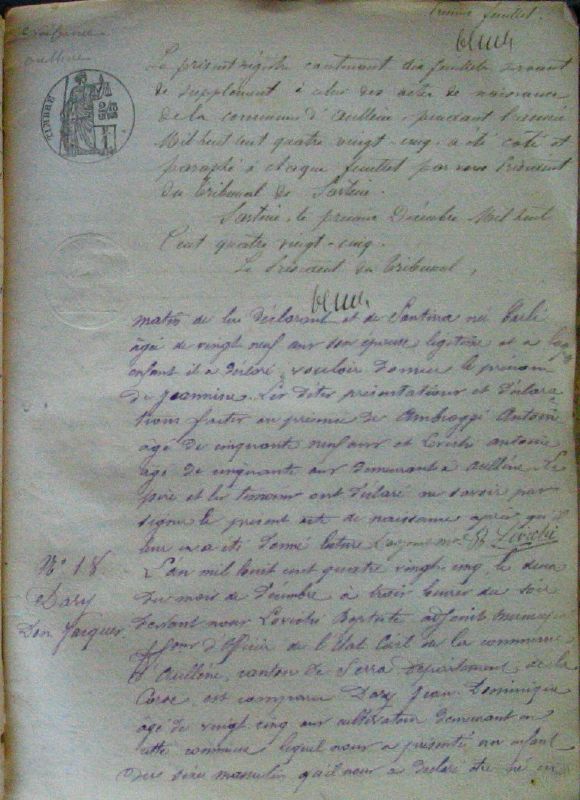 premier feuillet.
naissance
aullène
TIMBRE
Le présent registre contenant dix feuillets servant
de supplément à celui des actes de naissance
de la commune d'Aullène, pendant l'année
Mil huit cent quatre vingt-cinq, a été coté et
paraphé à chaque feuillet par nous Président
du tribunal de Sartène.
Sartène, le premier Décembre Mil huit
Cent quatre vingt-cinq.
Le Président du Tribunal,
matin de lui déclarant et de Santina née
âgée de vingt neuf ans son épouse légitime et à
enfant il a déclaré vouloir donner le prénom
de Jeannine. Les dites présentations et déclara-
tions faites en présence de Ambroggi Antoine
âgé de cinquante neuf ans et Lovichi antoine
âgé de cinquante ans demeurant à Aullène. Le
père et les témoins ont déclaré ne savoir pas
signer le présent acte de naissance après qu'il
leur en a été donné lecture L'adjoint B Lovichi
N° 18
Dary
Don Jacques
L'an mil huit cent quatre vingt cinq le deux
du mois de Décembre à trois heures du soir
devant nous Lovichi Baptiste adjoint
pour d'officier de l'état Civil de la commune
d'Aullène, canton de Serra département de la
Corse est comparu Dary Jean Dominique
âgé de vingt cinq ans cultivateur demeurant en
cette commune lequel nous a présenté un enfant
du sexe masculin qu'il nous a déclaré être né en